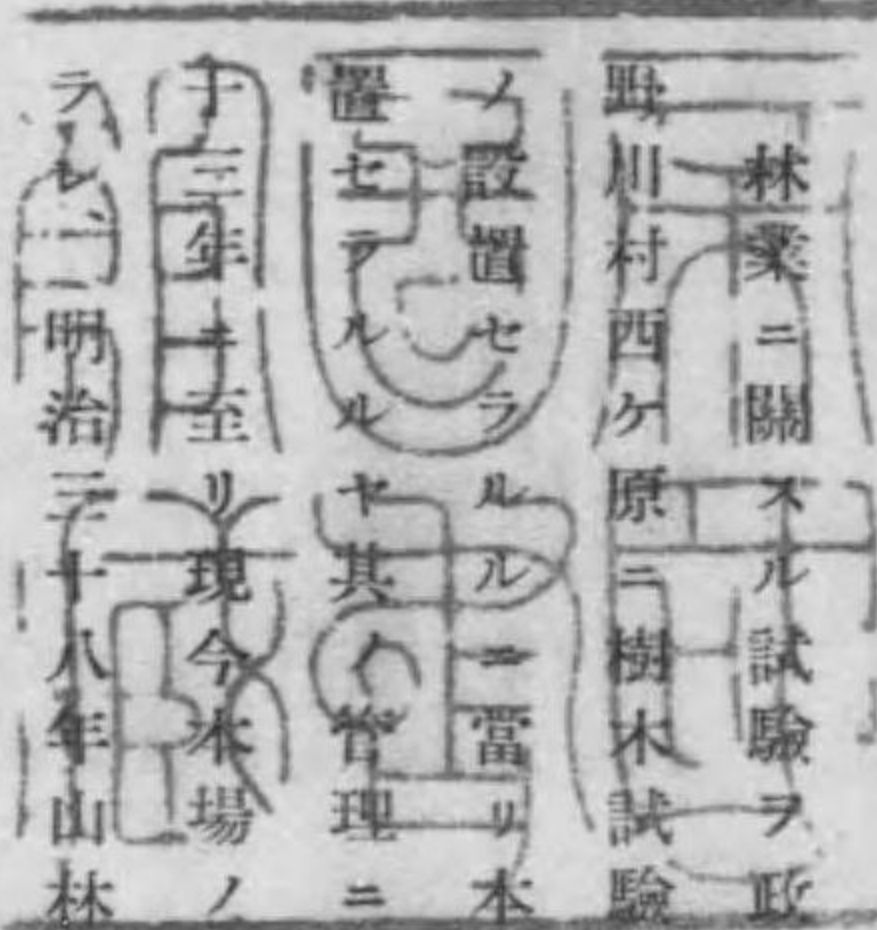 林業ニ關スル試驗ヲ政
野川村西ケ原ニ樹木試驗
ノ設置セラルルニ當リ本
置セラルルヤ其ノ管理ニ
十三年ニ至リ現今本場ノ
ラレ、明治三十八年山林